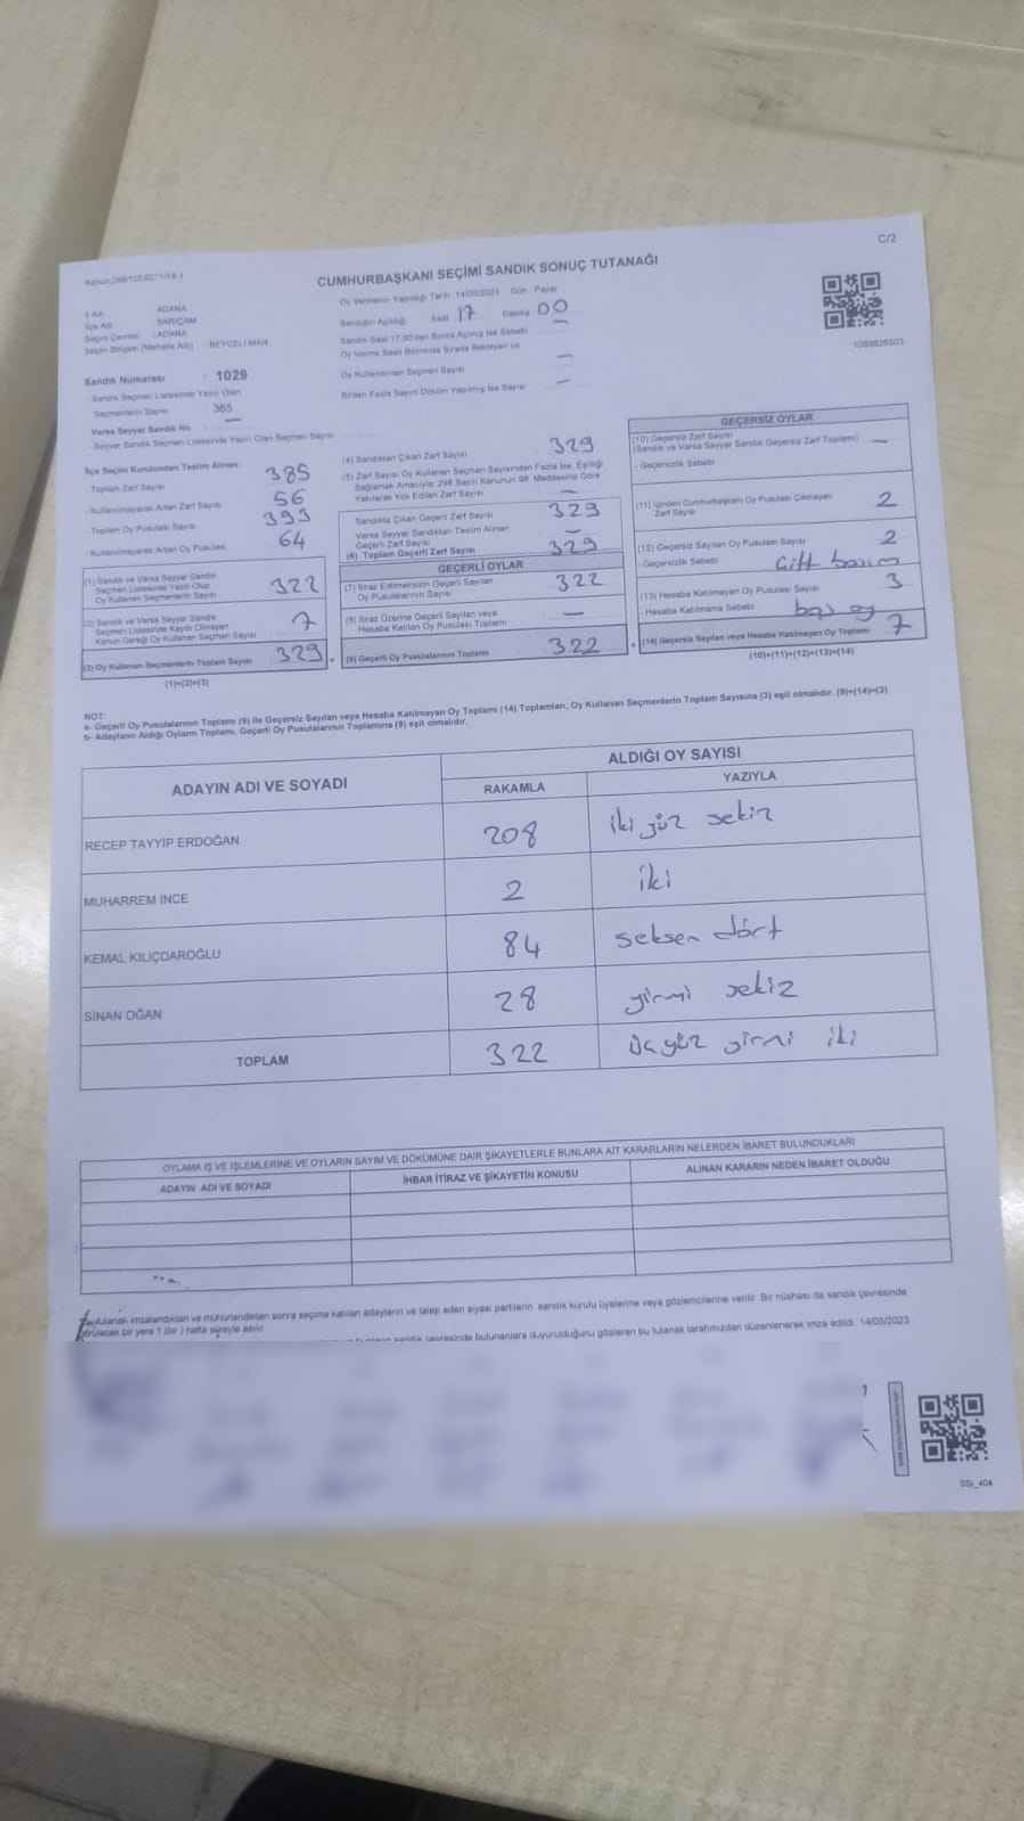 C/2
CUMHURBAŞKANI SEÇİMİ SANDIK SONUÇ TUTANAĞI
Oy Vermenin Yapıldığı Tarih: 14/05/2023 Gün : Pazar
İl Adı : ADANA
İlçe Adı : SARIÇAM
Seçim Çevresi : ADANA
Seçim Bölgesi (Mahalle Adı) : BEYCELİ MAH.
Sandığın Açıldığı Saat 17 Dakika 00
Sandık Numarası : 1029
Sandık Seçmen Listesinde Yazılı Olan
Seçmenlerin Sayısı : 365
Varsa Seyyar Sandık No —
Seyyar Sandık Seçmen Listesinde Yazılı Olan Seçmen Sayısı
Oy Kullandırılan Seçmen Sayısı —
Birden Fazla Sayım Döküm Yapılmış İse Sayısı —
İlçe Seçim Kurulundan Teslim Alınan
Toplam Zarf Sayısı 385
Kullanılmayarak Artan Zarf Sayısı 56
Toplam Oy Pusulası Sayısı 393
Kullanılmayarak Artan Oy Pusulası 64
(1) Sandık ve Varsa Seyyar Sandık
Seçmen Listesinde Yazılı Olup
Oy Kullanan Seçmenlerin Sayısı 322
(2) Sandık ve Varsa Seyyar Sandık
Seçmen Listesinde Kaydı Olmayan
Kanun Gereği Oy Kullanan Seçmen Sayısı 7
(3) Oy Kullanan Seçmenlerin Toplam Sayısı 329
(1)+(2)=(3)
(4) Sandıktan Çıkan Zarf Sayısı 329
(5) Zarf Sayısı Oy Kullanan Seçmen Sayısından Fazla İse, Eşitliği
Sağlamak Amacıyla 298 Sayılı Kanunun 98. Maddesine Göre
Yakılarak Yok Edilen Zarf Sayısı —
Sandıkta Çıkan Geçerli Zarf Sayısı 329
Varsa Seyyar Sandıktan Teslim Alınan
Geçerli Zarf Sayısı —
(6) Toplam Geçerli Zarf Sayısı 329
GEÇERLİ OYLAR
(7) İtiraz Edilmeksizin Geçerli Sayılan
Oy Pusulalarının Sayısı 322
(8) İtiraz Üzerine Geçerli Sayılan veya
Hesaba Katılan Oy Pusulası Toplamı —
(9) Geçerli Oy Pusulalarının Toplamı 322
GEÇERSİZ OYLAR
(10) Geçersiz Zarf Sayısı
(Sandık ve Varsa Seyyar Sandık Geçersiz Zarf Toplamı) —
Geçersizlik Sebebi
(11) İçinden Cumhurbaşkanı Oy Pusulası Çıkmayan
Zarf Sayısı 2
(12) Geçersiz Sayılan Oy Pusulası Sayısı 2
Geçersizlik Sebebi Çift basım
(13) Hesaba Katılmayan Oy Pusulası Sayısı 3
Hesaba Katılmama Sebebi boş oy
(14) Geçersiz Sayılan veya Hesaba Katılmayan Oy Toplamı 7
(10)+(11)+(12)+(13)=(14)
NOT:
a- Geçerli Oy Pusulalarının Toplamı (9) ile Geçersiz Sayılan veya Hesaba Katılmayan Oy Toplamı (14) Toplamları, Oy Kullanan Seçmenlerin Toplam Sayısına (3) eşit olmalıdır. (9)+(14)=(3)
b- Adayların Aldığı Oyların Toplamı, Geçerli Oy Pusulalarının Toplamına (9) eşit olmalıdır.
ADAYIN ADI VE SOYADI ALDIĞI OY SAYISI
RAKAMLA YAZIYLA
RECEP TAYYİP ERDOĞAN 208 iki yüz sekiz
MUHARREM İNCE 2 iki
KEMAL KILIÇDAROĞLU 84 seksen dört
SİNAN OĞAN 28 yirmi sekiz
TOPLAM 322 üç yüz yirmi iki
OYLAMA İŞ VE İŞLEMLERİNE VE OYLARIN SAYIM VE DÖKÜMÜNE DAİR ŞİKAYETLERLE BUNLARA AİT KARARLARIN NELERDEN İBARET BULUNDUKLARI
ADAYIN ADI VE SOYADI İHBAR İTİRAZ VE ŞİKAYETİN KONUSU ALINAN KARARIN NEDEN İBARET OLDUĞU
imzalandıktan ve mühürlendikten sonra seçime katılan adayların ve talep eden siyasi partilerin sandık kurulu üyelerine veya gözlemcilerine verilir. Bir nüshası da sandık çevresinde
bir yere 1 (bir) hafta süreyle asılır.
sandık çevresinde bulunanlara duyurulduğunu gösteren bu tutanak tarafımızdan düzenlenerek imza edildi. 14/05/2023